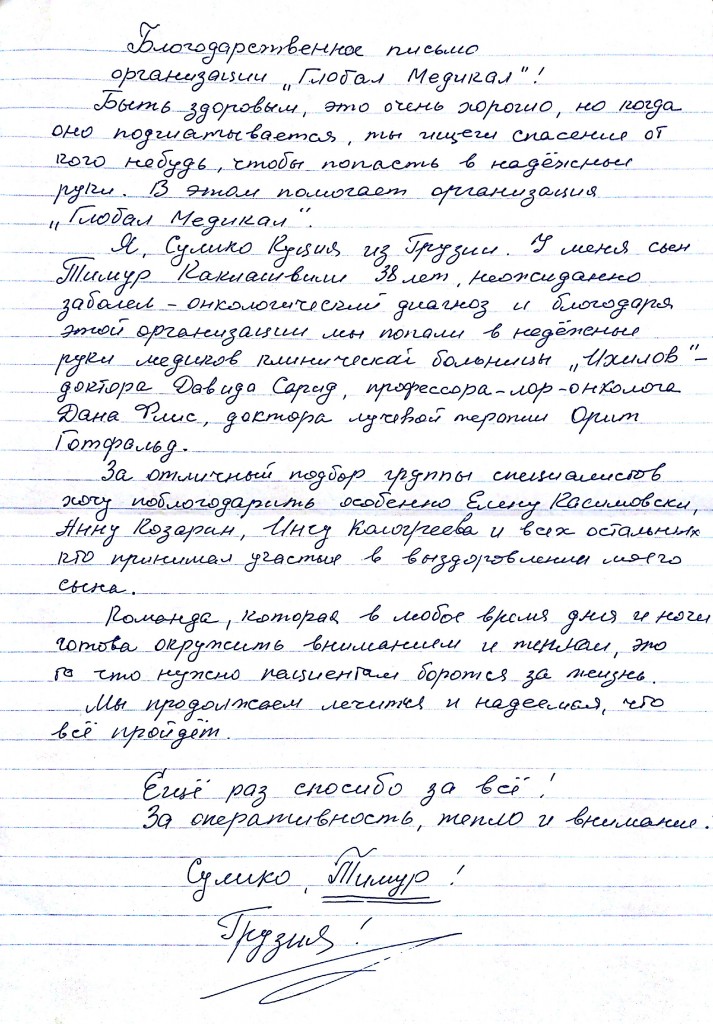 Благодарственное письмо
организации „Глобал Медикал"!
Быть здоровым, это очень хорошо, но когда
оно подшатывается, ты ищеш спасение от
кого небудь, чтобы попасть в надёжные
руки. В этом помогает организация
„Глобал Медикал".
Я, Сулико Куция из Грузии. У меня сын
Тимур Каклашвили 38 лет, неожиданно
заболел – онкологический диагноз и благодаря
этой организации мы попали в надёжные
руки медиков клинической больницы „Ихилов" –
доктора Давида Сарид, профессора-лор-онколога
Дана Флис, доктора лучевой терапии Орит
Готфольд.
За отличный подбор группы специалистов
хочу поблогодарить особенно Елену Касимовски,
Анну Козарин, Инну Кологреева и всех остальных
кто принимал участие в выздоровлении моего
сына.
Команда, которая в любое время дня и ночи
готова окружить вниманием и теплом, это
то что нужно пациентам боротся за жизнь.
Мы продолжаем лечится и надеемся, что
всё пройдёт.
Ещё раз спосибо за всё!
За оперативность, тепло и внимание.
Сулико, Тимур!
Грузия!